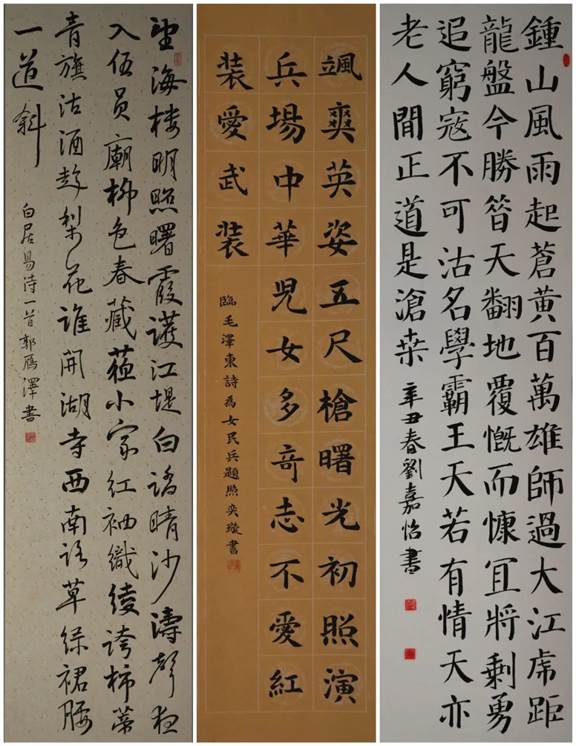 望海楼明照曙霞護江堤白踏晴沙濤聲夜
入伍員廟柳色春藏蘇小家紅袖織綾誇柿蒂
青旗沽酒趁梨花誰開湖寺西南路草綠裙腰
一道斜
白居易诗一首郭雁澤書
颯爽英姿五尺槍曙光初照演
兵場中華兒女多奇志不愛紅
裝愛武裝
臨毛澤東詩為女民兵題照奕璇書
鍾山風雨起蒼黃百萬雄師過大江虎距
龍盤今勝昔天翻地覆慨而慷宜將剩勇
追窮寇不可沽名學霸王天若有情天亦
老人間正道是滄桑
辛丑春劉嘉怡書